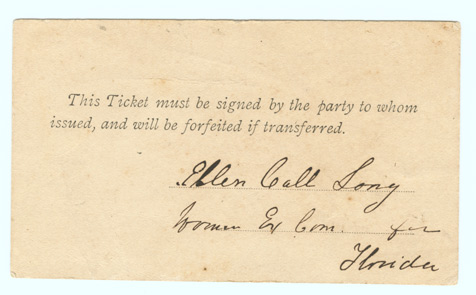 This Ticket must be signed by the party to whom
issued, and will be forfeited if transferred.
Ellen Call Long
Women Ex Com. for
Florida